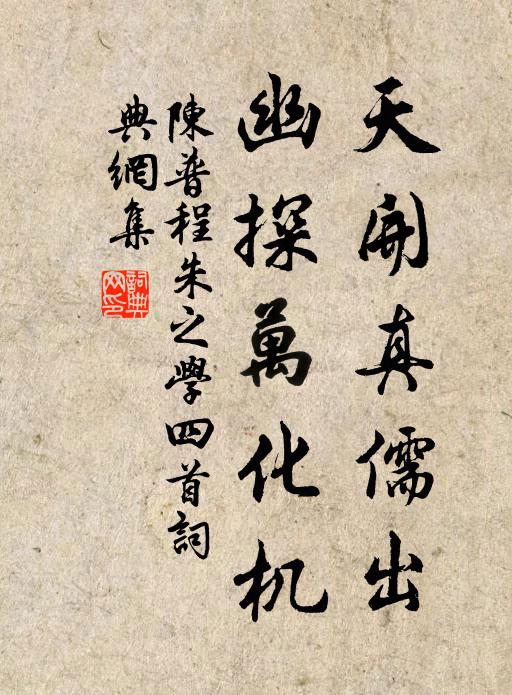 天開真儒出
幽探萬化机
陳普程朱之學四首詞
典網集
詞典網印